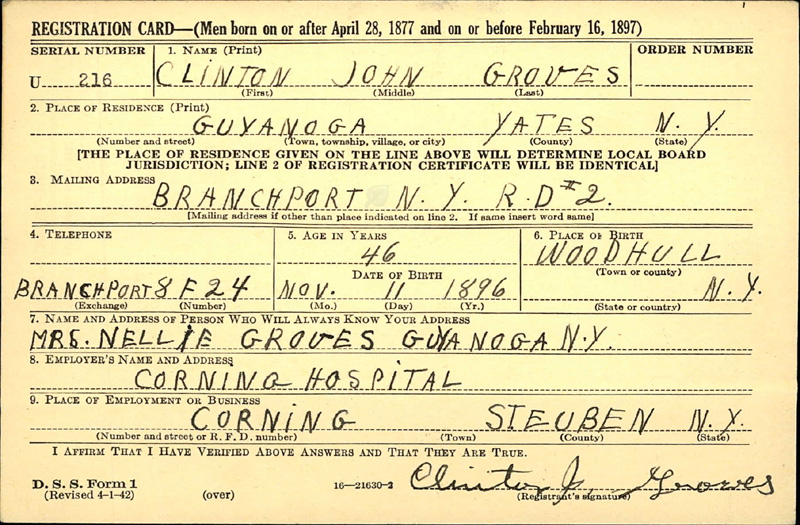 REGISTRATION CARD—(Men born on or after April 28, 1877 and on or before February 16, 1897)
SERIAL NUMBER 1. NAME (Print) ORDER NUMBER
U 216 CLINTON JOHN GROVES
(First) (Middle) (Last)
2. PLACE OF RESIDENCE (Print)
GUYANOGA YATES N. Y.
(Number and street) (Town, township, village, or city) (County) (State)
[THE PLACE OF RESIDENCE GIVEN ON THE LINE ABOVE WILL DETERMINE LOCAL BOARD
JURISDICTION; LINE 2 OF REGISTRATION CERTIFICATE WILL BE IDENTICAL]
3. MAILING ADDRESS
BRANCHPORT N. Y. R. D #2.
[Mailing address if other than place indicated on line 2. If same insert word same]
4. TELEPHONE 5. AGE IN YEARS 6. PLACE OF BIRTH
46 WOODHULL
DATE OF BIRTH (Town or county)
BRANCHPORT 8 F 24 NOV. 11 1896 N. Y.
(Exchange) (Number) (Mo.) (Day) (Yr.) (State or country)
7. NAME AND ADDRESS OF PERSON WHO WILL ALWAYS KNOW YOUR ADDRESS
MRS. NELLIE GROVES GUYANOGA N.Y.
8. EMPLOYER'S NAME AND ADDRESS
CORNING HOSPITAL
9. PLACE OF EMPLOYMENT OR BUSINESS
CORNING STEUBEN N.Y.
(Number and street or R. F. D. number) (Town) (County) (State)
I AFFIRM THAT I HAVE VERIFIED ABOVE ANSWERS AND THAT THEY ARE TRUE.
D. S. S. Form 1
(Revised 4-1-42) (over) 16—21630-2 Clinton J. Groves
(Registrant's signature)